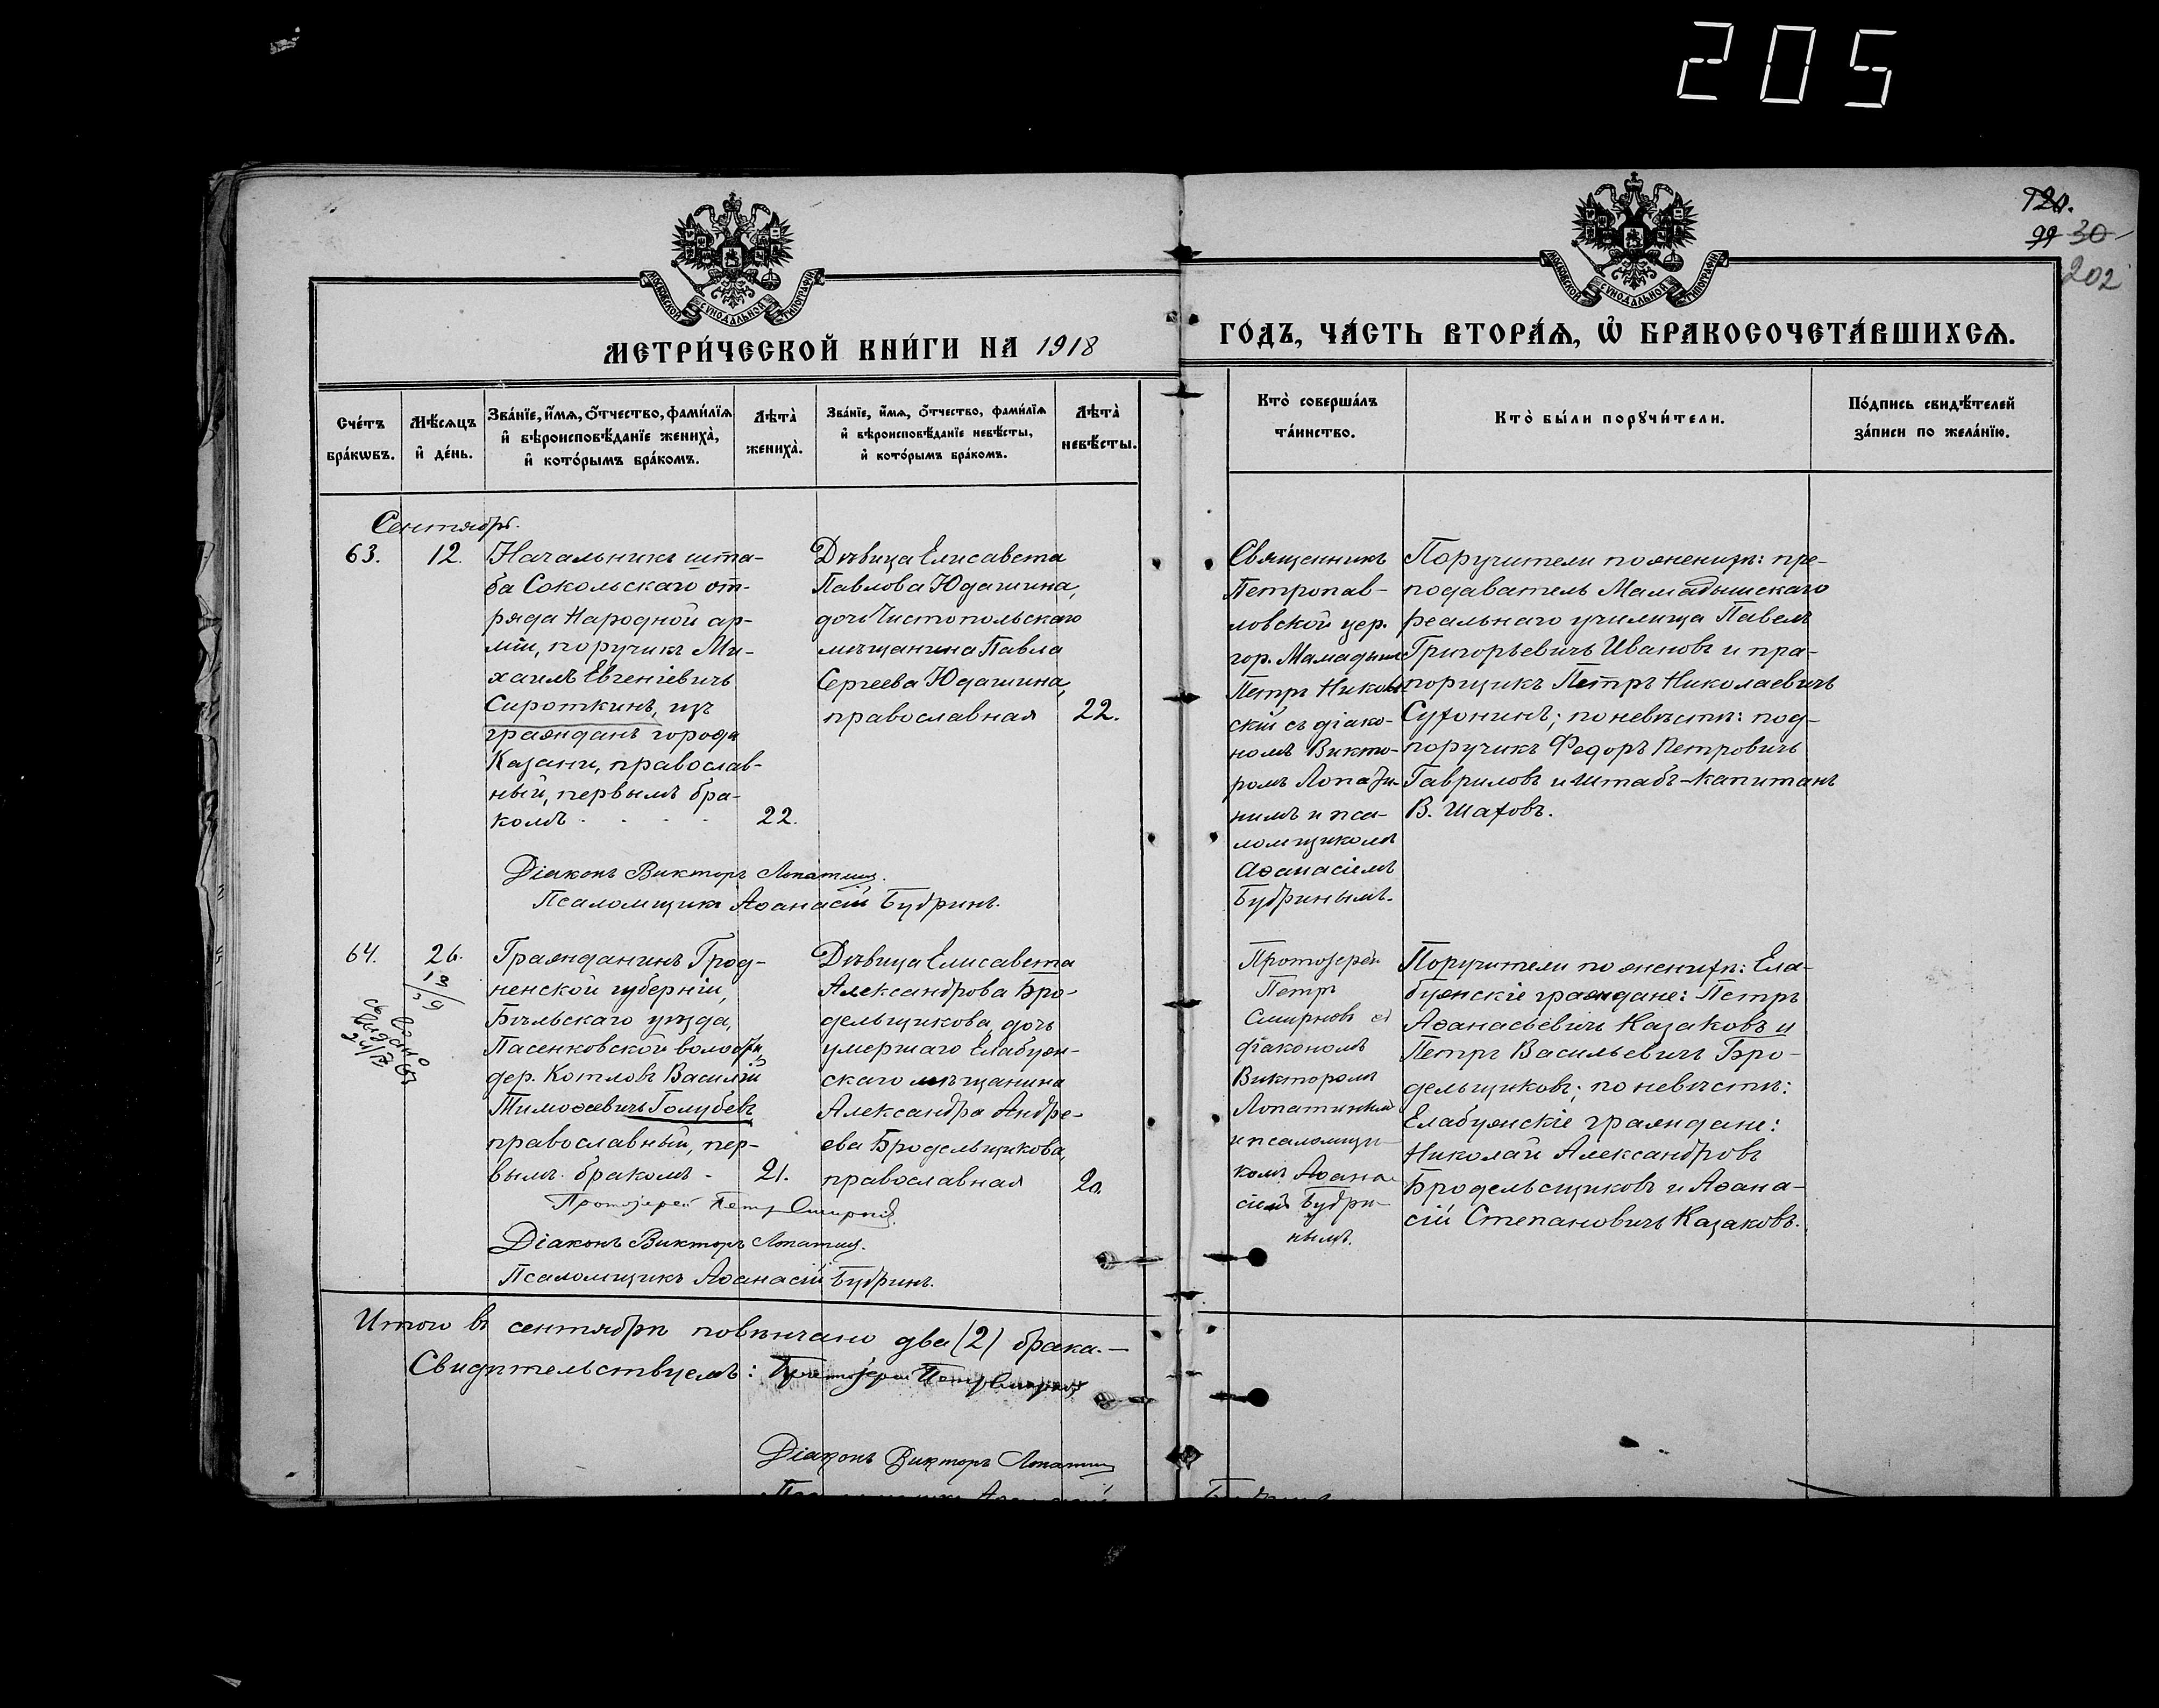 205
120.
99 30
202
МОСКОВСКОЙ СУНОДАЛЬНОЙ ТИПОГРАФІИ
МОСКОВСКОЙ СУНОДАЛЬНОЙ ТИПОГРАФІИ
МЕТРИ́ЧЕСКОЙ КНИ́ГИ НА 1918
ГО́ДЪ, ЧА́СТЬ ВТОРА́Ѧ, Ѽ БРАКОСОЧЕТА́ВШИХСѦ.
Сче́тъ
бра́кѡвъ.
Мѣ́сѧцъ
и҆ де́нь.
Зва́нїе, и҆́мѧ, ѻ҆́тчество, фами́лїѧ
и҆ вѣроисповѣ́данїе жениха̀,
и҆ кото́рымъ бра́комъ.
Лѣта̀
жениха̀.
Зва́нїе, и҆́мѧ, ѻ҆́тчество, фами́лїѧ
и҆ вѣроисповѣ́данїе невѣ́сты,
и҆ кото́рымъ бра́комъ.
Лѣта̀
невѣ́сты.
Кто̀ соверша́лъ
та́инство.
Кто̀ бы́ли порꙋчи́тели.
По́дпись свидѣ́телей
за́писи по жела́нїю.
Сентябрь.
63.
12.
Начальникъ шта-
ба Сокольскаго от-
ряда Народной ар-
міи, поручикъ Ми-
хаилъ Евгеніевичъ
Сироткинъ, изъ
гражданъ города
Казани, православ-
ный, первымъ бра-
комъ
22.
Дѣвица Елисавета
Павлова Юдашина,
дочь Чистопольскаго
мѣщанина Павла
Сергеева Юдашина,
православная
22.
Священникъ
Петропав-
ловской цер.
гор. Мамадыша
Петръ Николь
скій съ діако-
номъ Викто-
ромъ Лопати-
нымъ и пса-
ломщикомъ
Аѳанасіемъ
Будринымъ.
Поручители по женихѣ: пре-
подаватель Мамадышскаго
реальнаго училища Павелъ
Григорьевичъ Ивановъ и пра-
порщикъ Петръ Николаевичъ
Сухонинъ; по невѣстѣ: под-
поручикъ Федоръ Петровичъ
Гавриловъ и штабъ-капитанъ
В. Шаховъ.
Діаконъ Викторъ Лопатинъ.
Псаломщикъ Аѳанасій Будринъ.
64.
26.
13
59
выдано
24/
Гражданинъ Грод-
ненской губерніи,
Бѣльскаго уѣзда,
Пасенковской волости,
дер. Котловъ Василій
Тимоѳеевичъ Голубевъ
православный, пер-
вымъ бракомъ -
21.
Дѣвица Елисавета
Александрова Бро-
дельщикова, дочь
умершаго Елабуж-
скаго мѣщанина
Александра Андре-
ева Бродельщикова,
православная
20.
Протоіерей
Петръ
Смирновъ съ
діакономъ
Викторомъ
Лопатинымъ
и псаломщи-
комъ Аѳана-
сіемъ Будри-
нымъ.
Поручители по женихѣ: Ела-
бужскіе граждане: Петръ
Аѳанасьевичъ Казаковъ и
Петръ Васильевичъ Бро-
дельщиковъ; по невѣстѣ:
Елабужскіе граждане:
Николай Александровъ
Бродельщиковъ и Аѳана-
сій Степановичъ Казаковъ.
Протоіерей Петръ Смирновъ.
Діаконъ Викторъ Лопатинъ.
Псаломщикъ Аѳанасій Будринъ.
Итого въ сентябрѣ повѣнчано два (2) брака.—
Свидѣтельствуемъ: Протоіерей Петръ Смирновъ
Діаконъ Викторъ Лопатинъ